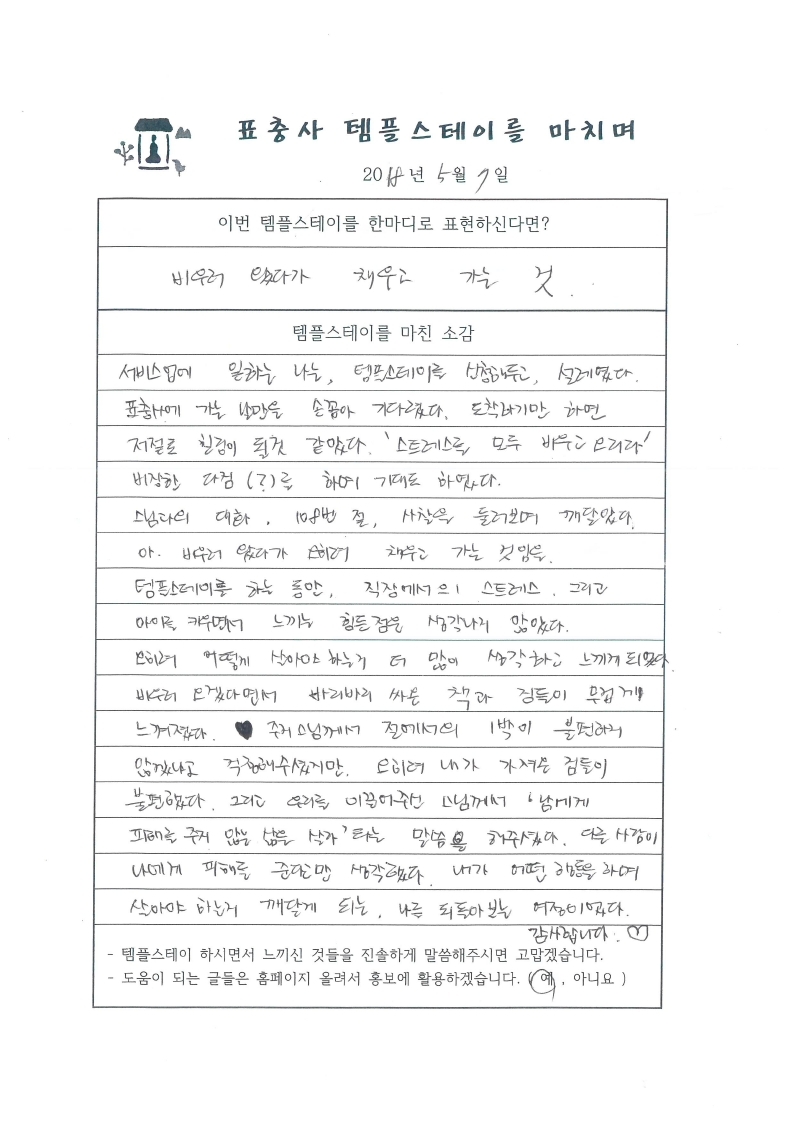 표충사 템플스테이를 마치며
2018년 5월 7일
이번 템플스테이를 한마디로 표현하신다면?
비우러 왔다가 채우고 가는 것.
템플스테이를 마친 소감
서비스업에 일하는 나는, 템플스테이를 신청해두고, 설레였다.
표충사에 가는 날만을 손꼽아 기다렸다. 도착하기만 하면
저절로 힐링이 될것 같았다. '스트레스를 모두 비우고 오리라'
비장한 다짐(?)을 하며 기대도 하였다.
스님과의 대화, 108번 절, 사찰을 둘러보며 깨달았다.
아. 비우러 왔다가 오히려 채우고 가는 것임을.
템플스테이를 하는 동안, 직장에서의 스트레스, 그리고
아이를 키우면서 느끼는 힘든점은 생각나지 않았다.
오히려 어떻게 살아야 하는지 더 많이 생각하고 느끼게 되었다
비우러 오겠다면서 바리바리 싸온 책과 짐들이 무겁게
느껴졌다. ♥ 주지스님께서 절에서의 1박이 불편하지
않겠냐고 걱정해주셨지만, 오히려 내가 가져온 짐들이
불편했다. 그리고 우리를 이끌어주신 스님께서 '남에게
피해를 주지 않는 삶을 살라' 라는 말씀을 해주셨다. 다른 사람이
나에게 피해를 준다고만 생각했다. 내가 어떤 행동을 하며
살아야 하는지 깨닫게 되는, 나를 되돌아보는 여정이었다.
감사합니다. ♡
- 템플스테이 하시면서 느끼신 것들을 진솔하게 말씀해주시면 고맙겠습니다.
- 도움이 되는 글들은 홈페이지 올려서 홍보에 활용하겠습니다. ( 예 , 아니요 )